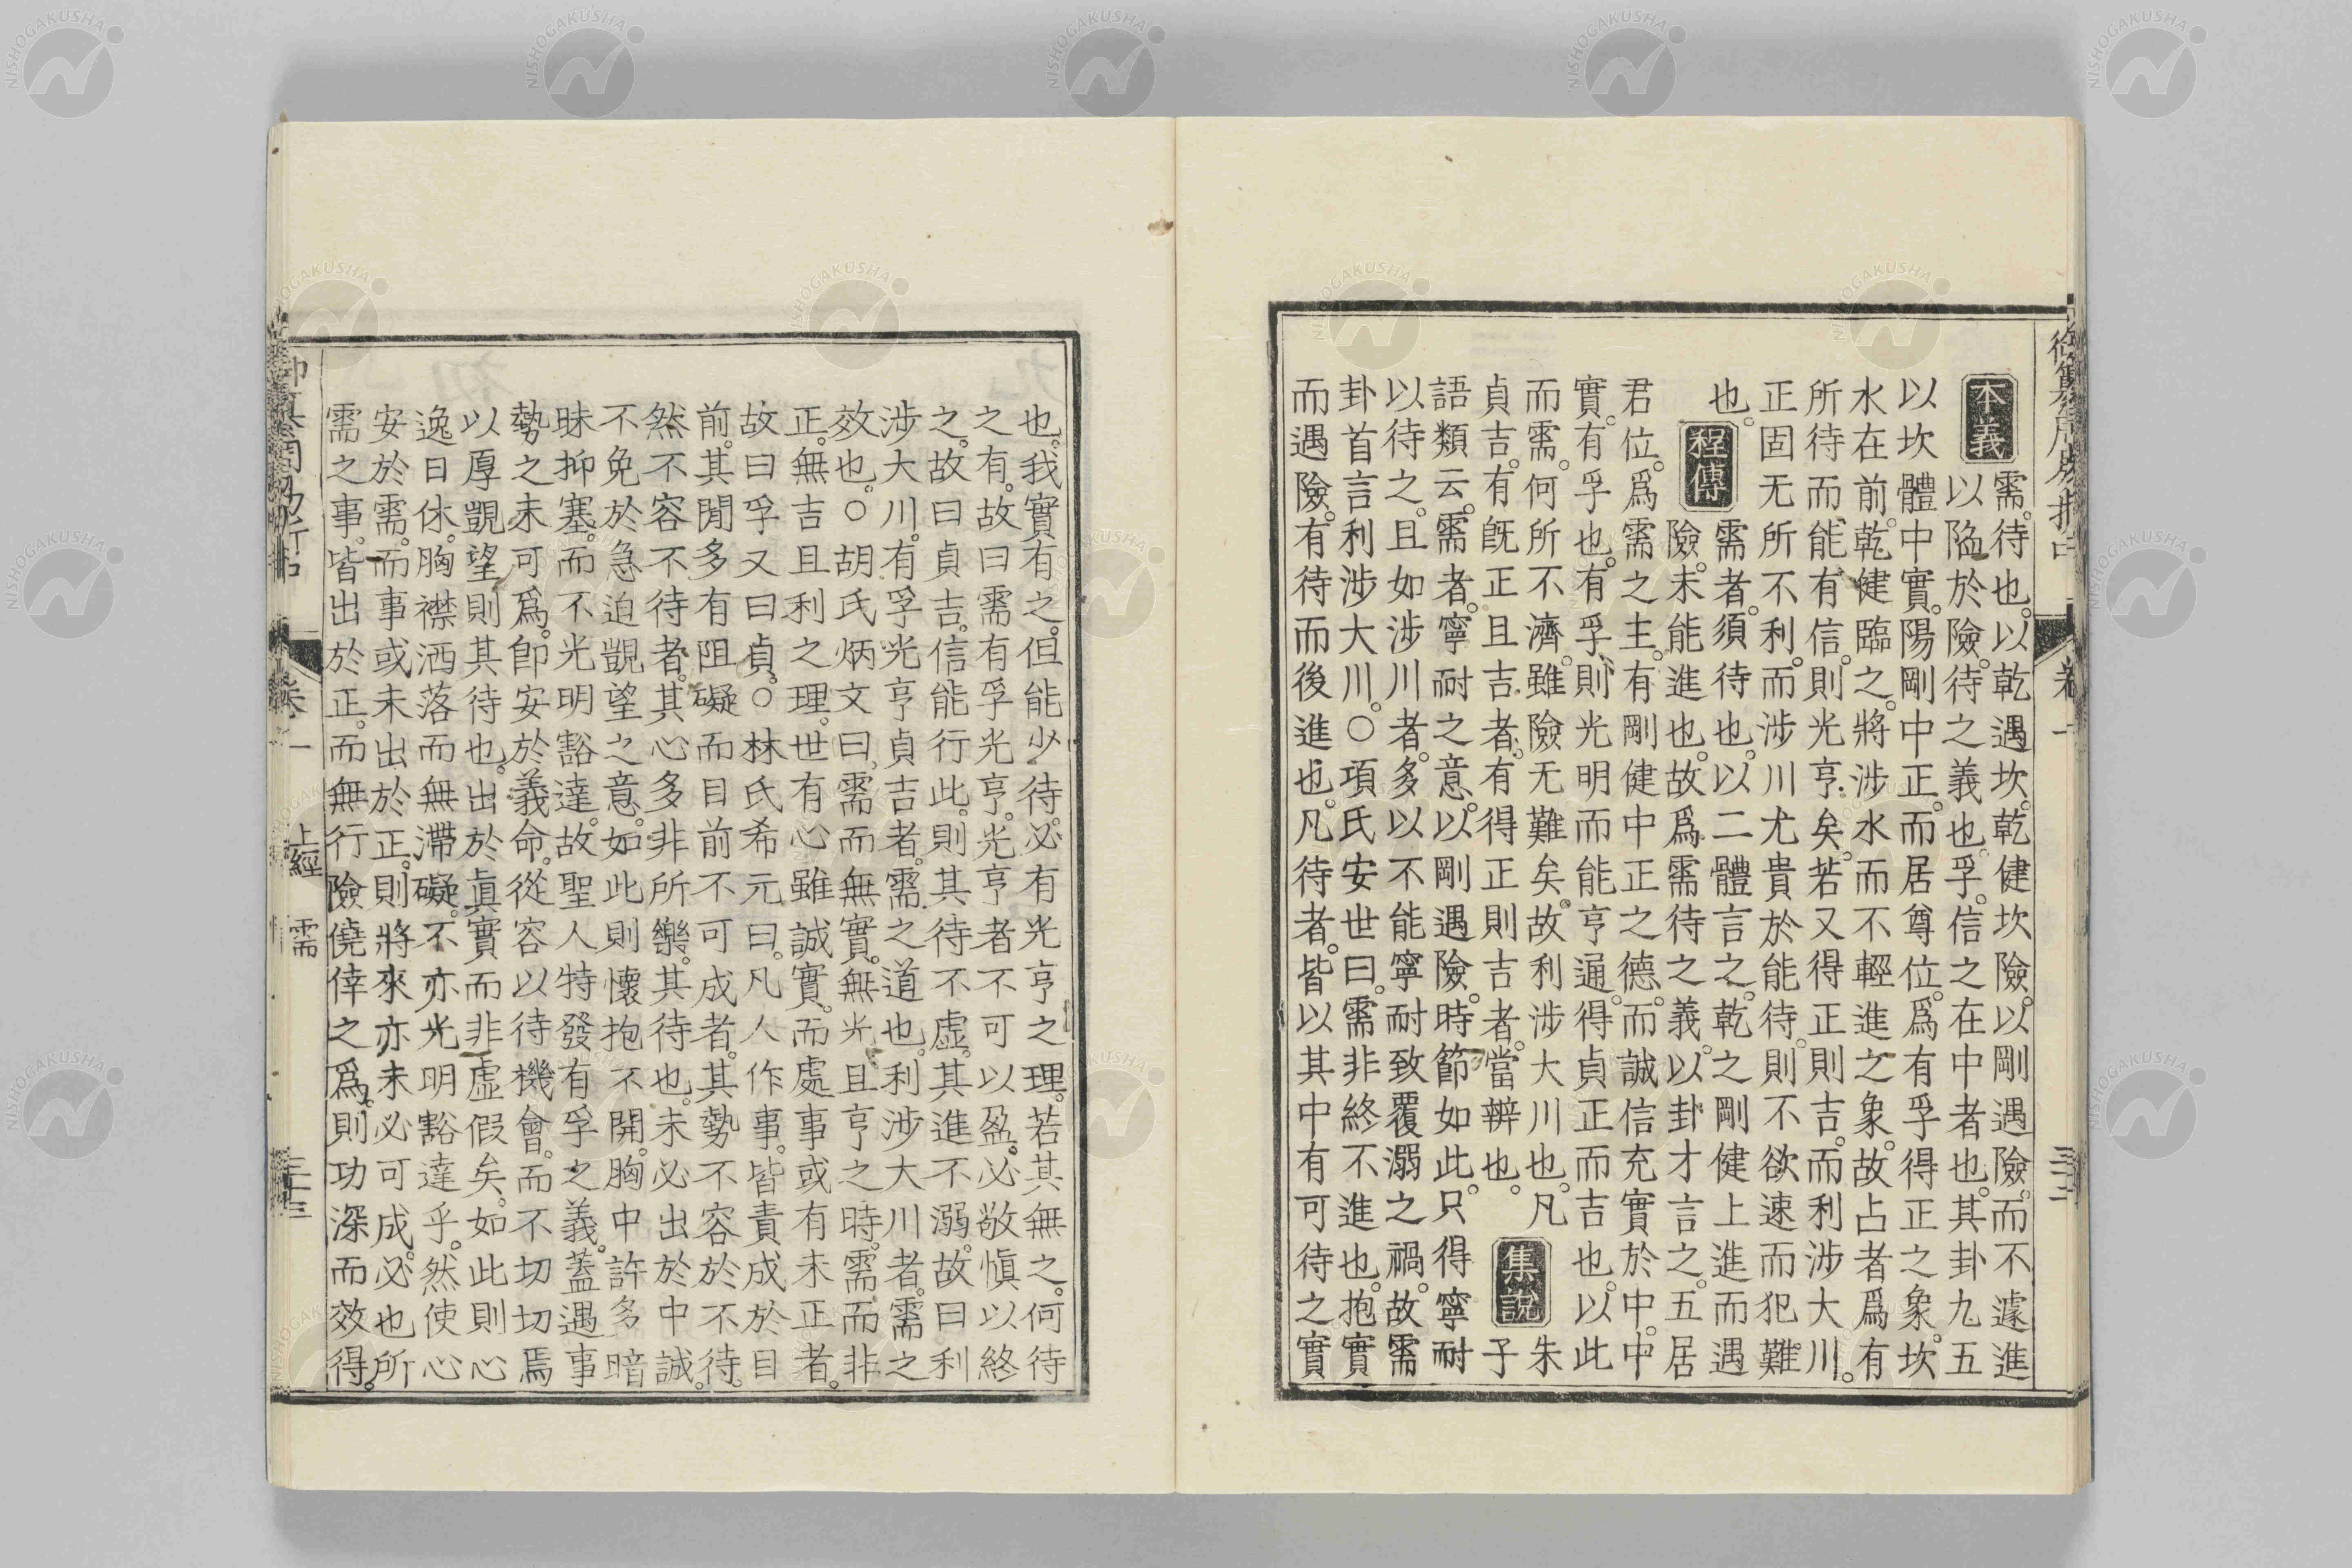 本義
需。待也。以乾遇坎。乾健坎險。以剛遇險。而不遽進
以陷於險。待之義也。孚。信之在中者也。其卦九五
以坎體中實。陽剛中正。而居尊位。爲有孚得正之象。坎
水在前。乾健臨之。將涉水而不輕進之象。故占者爲有
所待而能有信。則光亨矣。若又得正則吉。而利涉大川。
正固无所不利。而涉川尤貴於能待。則不欲速而犯難。
也。
程傳
需者。須待也。以二體言之。乾之剛健上進而遇
險。未能進也。故爲需待之義。以卦才言之。五居
君位。爲需之主。有剛健中正之德。而誠信充實於中。中
實。有孚也。有孚。則光明而能亨通。得貞正而吉也。以此
而需。何所不濟。雖險无難矣。故利涉大川也。凡
貞吉。有旣正且吉者。有得正則吉者。當辨也。
集說
朱
子
語類云。需者。寧耐之意。以剛遇險。時節如此。只得寧耐
以待之。且如涉川者。多以不能寧耐致覆溺之禍。故需
卦首言利涉大川。○項氏安世曰。需非終不進也。抱實
而遇險。有待而後進也。凡待者。皆以其中有可待之實
也。我實有之。但能少待。必有光亨之理。若其無之。何待
之有。故曰需有孚光亨。光亨者不可以盈。必敬愼以終
之。故曰貞吉。信能行此。則其待不虛。其進不溺。故曰利
涉大川。有孚光亨貞吉者。需之道也。利涉大川者。需之
效也。○胡氏炳文曰。需而無實。無光且亨之時。需而非
正。無吉且利之理。世有心雖誠實。而處事或有未正者。
故曰孚又曰貞。○林氏希元曰。凡人作事。皆責成於目
前。其閒多有阻礙而目前不可成者。其勢不容於不待。
然不容不待者。其心多非所樂。其待也。未必出於中誠。
不免於急迫覬望之意。如此則懷抱不開。胸中許多暗
昧抑塞。而不光明豁達。故聖人特發有孚之義。蓋遇事
勢之未可爲。卽安於義命。從容以待機會。而不切切焉
以厚覬望則其待也。出於眞實而非虛假矣。如此則心
逸日休。胸襟洒落而無滯礙。不亦光明豁達乎。然使心
安於需。而事或未出於正。則將來亦未必可成。必也所
需之事。皆出於正。而無行險僥倖之爲。則功深而效得。
卷一
上經
需
三十三